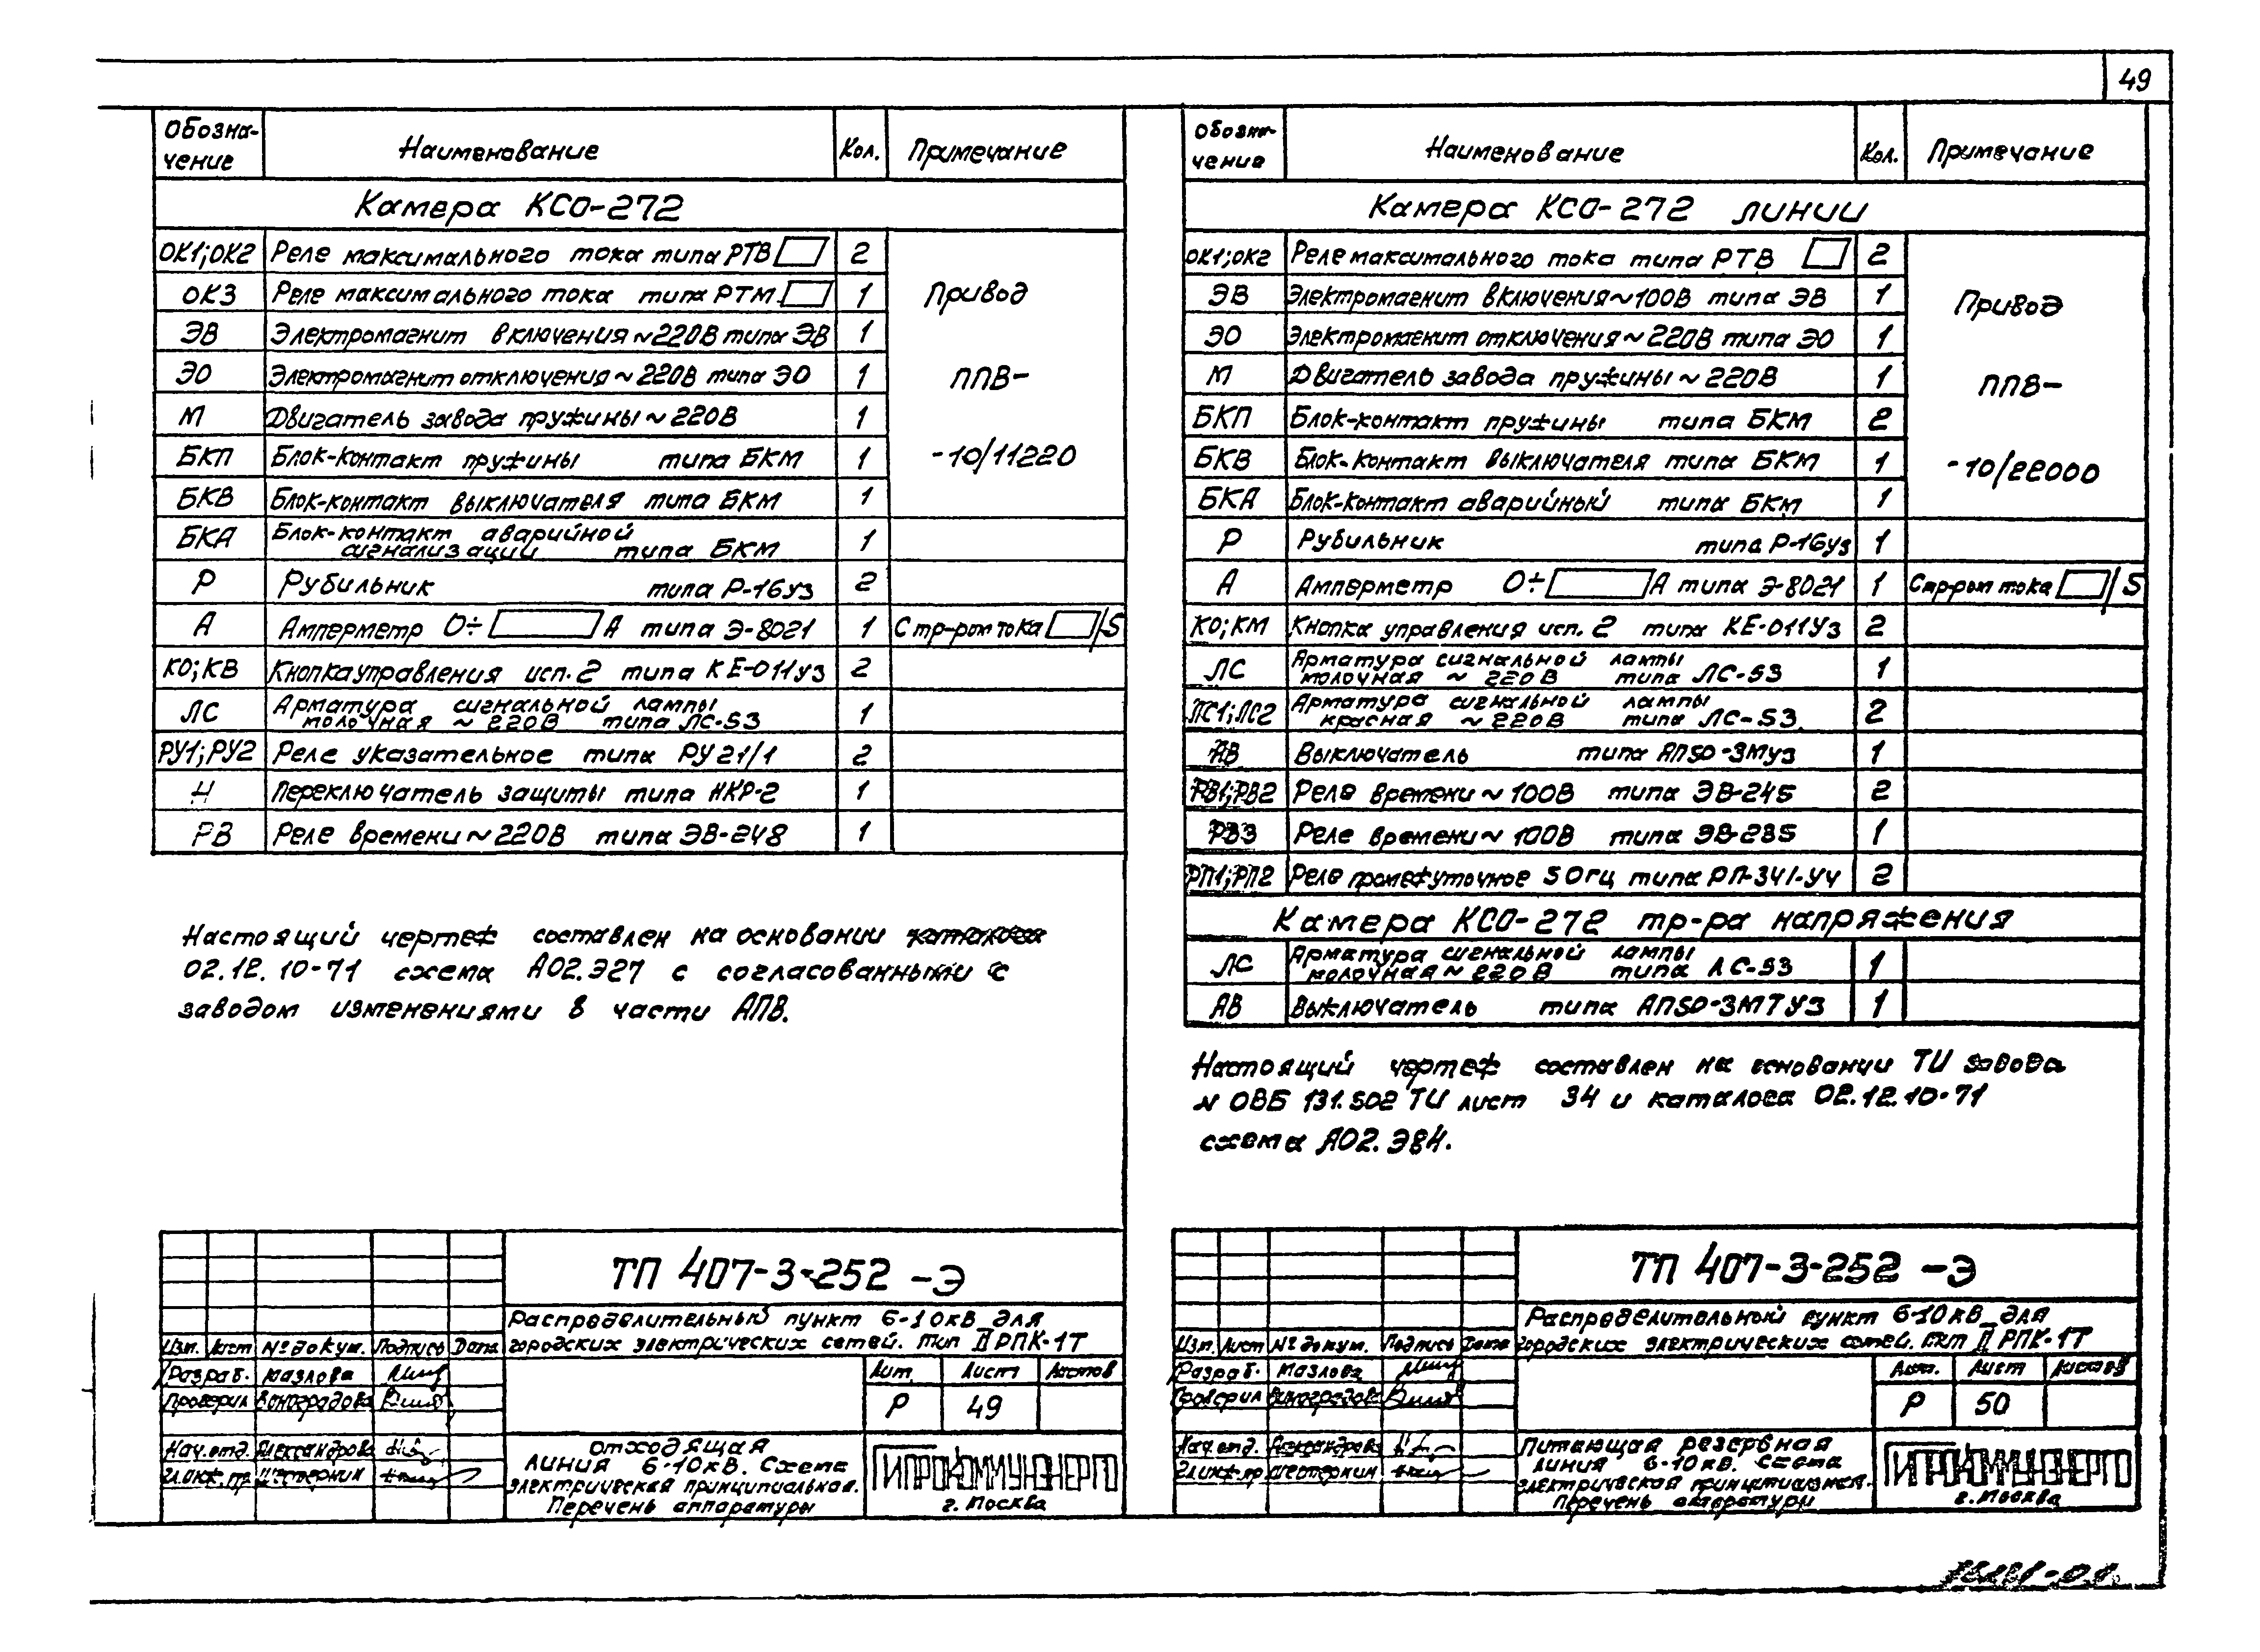 49
Обозна-чение Наименование Кол. Примечание
Камера КСО-272
ОК1;ОК2 Реле максимального тока типа РТВ 2
ОК3 Реле максимального тока типа РТМ 1
ЭВ Электромагнит включения ~220В типа ЭВ 1
ЭО Электромагнит отключения ~220В типа ЭО 1
М Двигатель завода пружины ~220В 1
БКП Блок-контакт пружины типа БКМ 1
БКВ Блок-контакт выключателя типа БКМ 1
Привод
ППВ-
-10/11220
БКА Блок-контакт аварийной
сигнализации типа БКМ 1
Р Рубильник типа Р-16У3 2
А Амперметр 0÷ А типа Э-8021 1 Стр-рот тока /5
КО;КВ Кнопка управления исп.2 типа КЕ-011У3 2
ЛС Арматура сигнальной лампы
молочная ~ 220В типа ЛС-53 1
РУ1;РУ2 Реле указательное типа РУ21/1 2
Н Переключатель защиты типа НКР-2 1
РВ Реле времени ~220В типа ЭВ-248 1
Настоящий чертеж составлен на основании каталога
02.12.10-71 схема А02.Э27 с согласованными с
заводом изменениями в части АПВ.
ТП 407-3-252 -Э
Распределительный пункт 6-10кВ для
городских электрических сетей. Тип II РПК-1Т
Изм. Лист № докум. Подпись Дата
Разраб. Мазлова
Проверил Виноградова
Нач.отд. Александрова
Гл.инж.пр. Шестернин
Лит. Лист Листов
Р 49
Отходящая
линия 6-10кВ. Схема
электрическая принципиальная.
Перечень аппаратуры
ГИПРОКОММУНЭНЕРГО
г. Москва
Обозна-чение Наименование Кол. Примечание
Камера КСО-272 линии
ОК1;ОК2 Реле максимального тока типа РТВ 2
ЭВ Электромагнит включения ~100В типа ЭВ 1
ЭО Электромагнит отключения ~220В типа ЭО 1
М Двигатель завода пружины ~220В 1
БКП Блок-контакт пружины типа БКМ 2
БКВ Блок-контакт выключателя типа БКМ 1
БКА Блок-контакт аварийный типа БКМ 1
Привод
ППВ-
-10/22000
Р Рубильник типа Р-16У3 1
А Амперметр 0÷ А типа Э-8021 1 Стр-рот тока /5
КО;КМ Кнопка управления исп.2 типа КЕ-011У3 2
ЛС Арматура сигнальной лампы
молочная ~ 220В типа ЛС-53 1
ЛС1;ЛС2 Арматура сигнальной лампы
красная ~220В типа ЛС-53 2
АВ Выключатель типа АП50-3МУ3 1
РВ1;РВ2 Реле времени ~100В типа ЭВ-245 2
РВ3 Реле времени ~100В типа ЭВ-235 1
РП1;РП2 Реле промежуточное 50гц типа РП-341-У4 2
Камера КСО-272 тр-ра напряжения
ЛС Арматура сигнальной лампы
молочная ~220В типа ЛС-53 1
АВ Выключатель типа АП50-3МТУ3 1
Настоящий чертеж составлен на основании ТИ завода
N ОВБ 131.502 ТИ лист 34 и каталога 02.12.10-71
схема А02.Э84.
ТП 407-3-252 -Э
Распределительной пункт 6-10кВ для
городских электрических сетей. тип II РПК-1Т
Изм. Лист № докум. Подпись Дата
Разраб. Мазлова
Проверил Виноградова
Нач.отд. Александрова
Гл.инж.пр. Шестернин
Лит. Лист Листов
Р 50
Питающая резервная
линия 6-10кВ. Схема
электрическая принципиальная.
Перечень аппаратуры
ГИПРОКОММУНЭНЕРГО
г. Москва